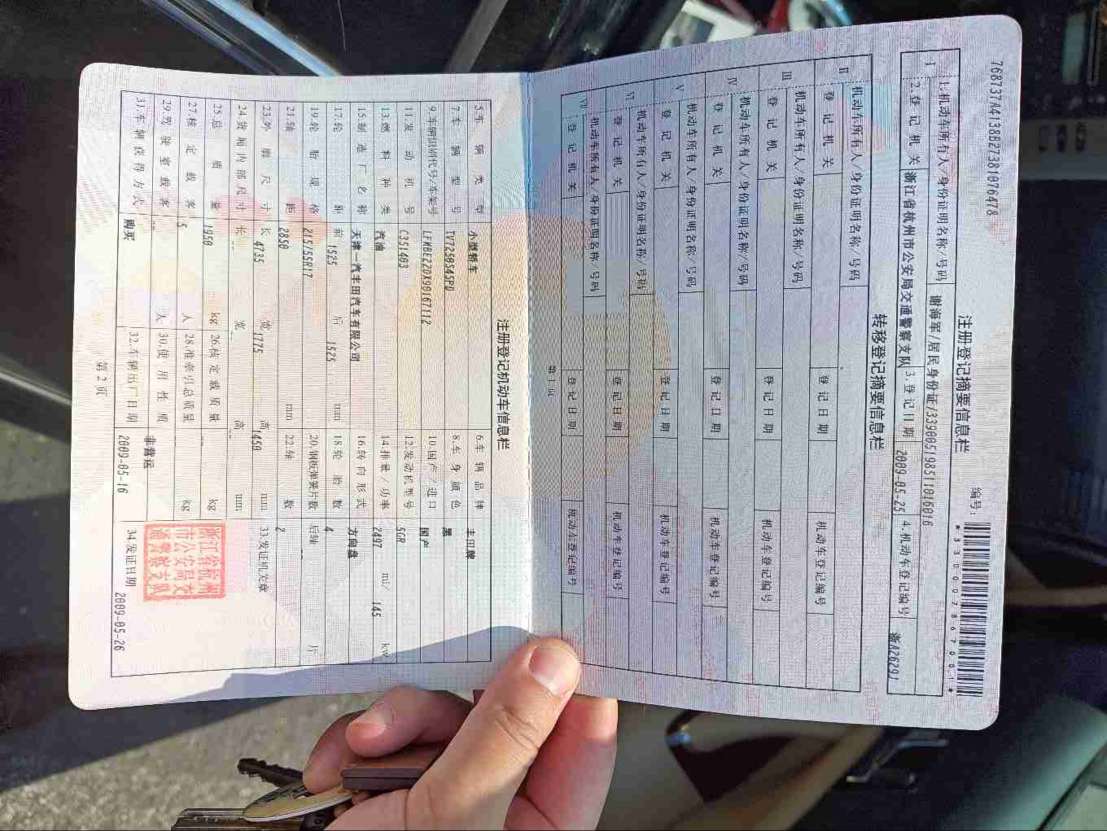 768737A4138B27381076478
注册登记摘要信息栏
编号:
*330007867001*
Ⅰ
1.机动车所有人/身份证明名称/号码 谢海军/居民身份证/339005198511016016
2.登记机关 浙江省杭州市公安局交通警察支队 3.登记日期 2009-05-25 4.机动车登记编号 浙A26291
转移登记摘要信息栏
Ⅱ
机动车所有人/身份证明名称/号码
登记机关 登记日期 机动车登记编号
Ⅲ
机动车所有人/身份证明名称/号码
登记机关 登记日期 机动车登记编号
Ⅳ
机动车所有人/身份证明名称/号码
登记机关 登记日期 机动车登记编号
Ⅴ
机动车所有人/身份证明名称/号码
登记机关 登记日期 机动车登记编号
Ⅵ
机动车所有人/身份证明名称/号码
登记机关 登记日期 机动车登记编号
Ⅶ
机动车所有人/身份证明名称/号码
登记机关 登记日期 机动车登记编号
第1页
注册登记机动车信息栏
5.车辆类型 小型轿车 6.车辆品牌
7.车辆型号 TV7250S4SPD 8.车身颜色 黑
9.车辆识别代号/车架号 LFMBE22DX90167112 10.国产/进口 国产
11.发动机号 C351403 12.发动机型号 5GR
13.燃料种类 汽油 14.排量/功率 2497 ml/ 145 kw
15.制造厂名称 天津一汽丰田汽车有限公司 16.转向形式 方向盘
17.轮距 前 1525 后 1525 mm 18.轮胎数 4
19.轮胎规格 215/55R17 20.钢板弹簧片数 后轴 -- 片
21.轴距 2850 mm 22.轴数 2
23.外廓尺寸 长 4735 宽 1775 高 1450 mm 33.发证机关章
24.货厢内部尺寸 长 -- 宽 高 mm
25.总质量 1950 kg 26.核定载质量 kg
27.核定载客 5 人 28.准牵引总质量 kg
29.驾驶室载客 人 30.使用性质 非营运
31.车辆获得方式 购买 32.车辆出厂日期 2009-05-16 34.发证日期 2009-05-26
浙江省杭州
市公安局交
通警察支队
第2页